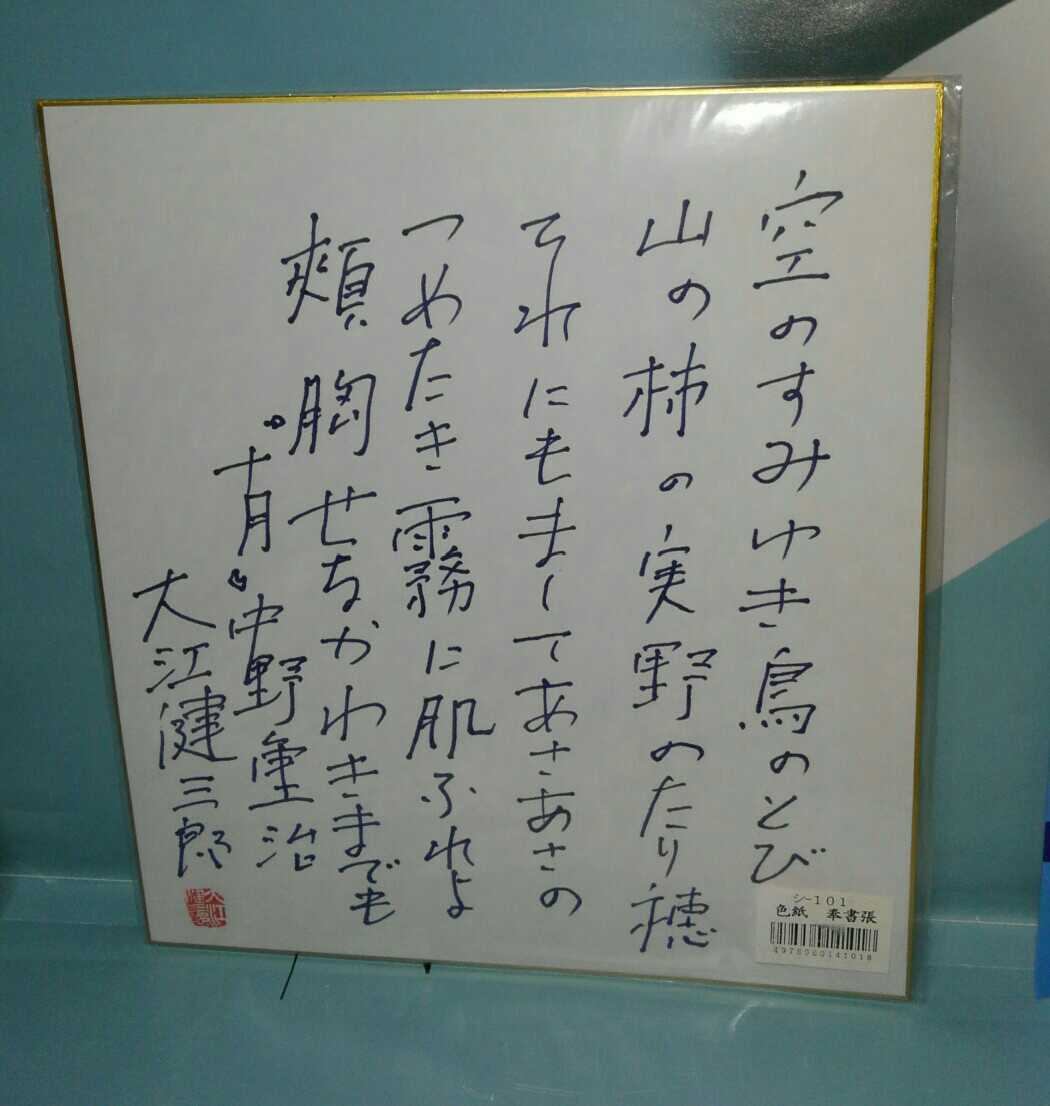 空のすみゆき鳥のとび
山の柿の実野のたり穂
それにもましてあさあさの
つめたき霧に肌ふれよ
頬胸せなかわきまでも
〝十月〟中野重治
大江健三郎
大江健三郎
シ-101
色紙 奉書張
4976060141018